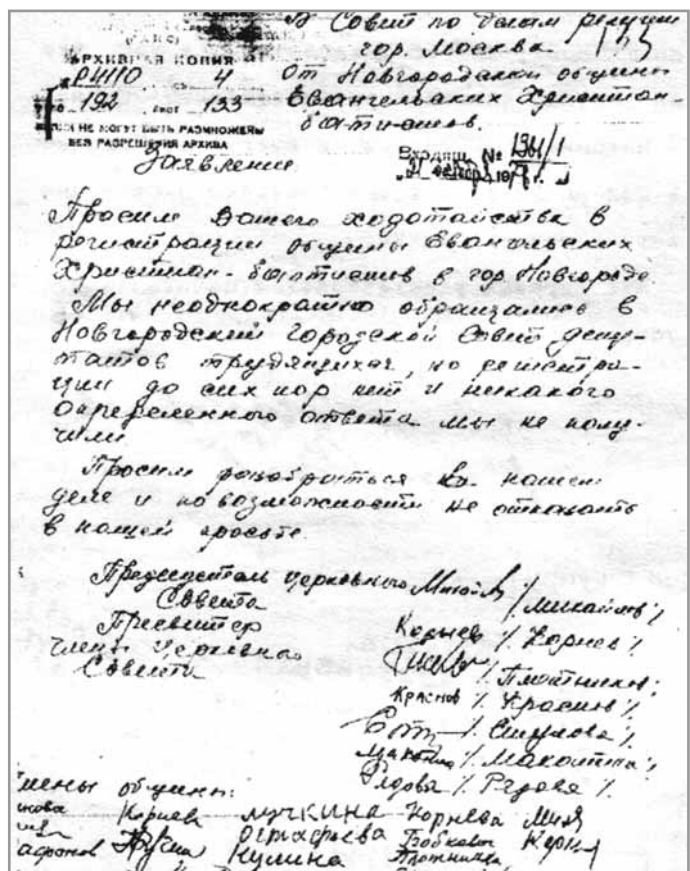 В Совет по делам религии
гор. Москва.
АРХИВНАЯ КОПИЯ
Р4110 4
192 лист 133
НЕ МОГУТ БЫТЬ РАЗМНОЖЕНЫ
БЕЗ РАЗРЕШЕНИЯ АРХИВА
От Новгородской общины
Евангельских Христиан-
баптистов.
Заявление
Входящ. № 1361/1
Просим Вашего ходотайства в
регистрации общины Евангельских
Христиан-баптистов в гор Новгороде.
Мы неоднократно обращались в
Новгородский городской Совет депу-
татов трудящихся, но регистра-
ции до сих пор нет и никакого
определенного ответа мы не полу-
чили.
Просим разобраться в нашем
деле и по возможности не отказать
в нашей просьбе.
Председатель церковного
Совета /Михайлов/
Пресвитер Корнев /Корнев/
члены церковного
Совета /Плотников/
Краснов /Краснов/
/Смирнова/
/Федова/
члены общины:
Корнева Мучкина Корнева
Остафьева
Кулина